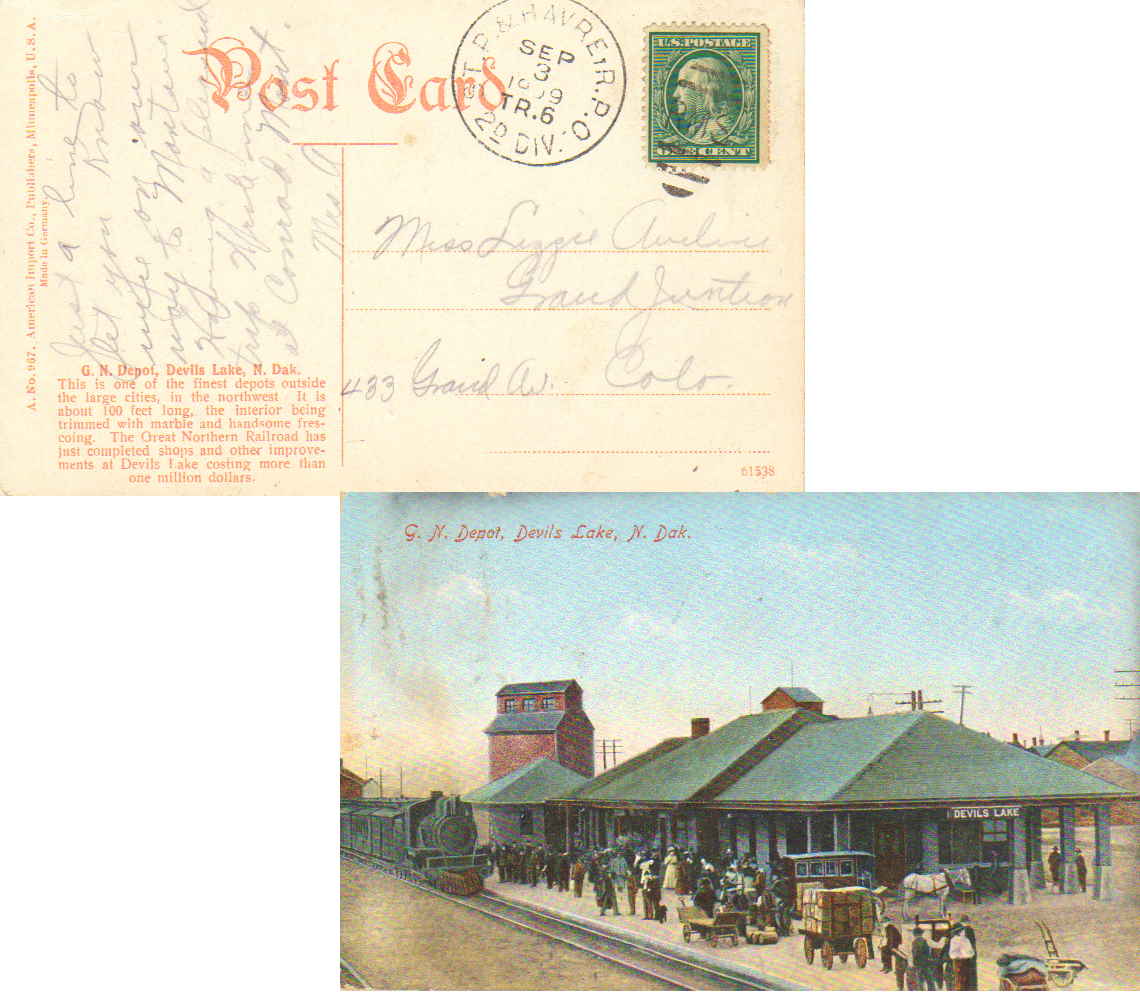 Post Card
ST. P. & HAVRE, R.P.O.
SEP
3
1909
TR. 6
2D DIV.
U.S. POSTAGE
ONE CENT
A. No. 967, American Import Co., Publishers, Minneapolis, U.S.A.
Made in Germany.
Just a line to
let you know
we're on our
way to Montana
Having a pleasant
trip. Write me
at Conrad, Mont.
Miss Lizzie
Grand Junction
Colo.
433 Grand Av.
G. N. Depot, Devils Lake, N. Dak.
This is one of the finest depots outside
the large cities, in the northwest It is
about 100 feet long, the interior being
trimmed with marble and handsome fres-
coing. The Great Northern Railroad has
just completed shops and other improve-
ments at Devils Lake costing more than
one million dollars.
61538
G. N. Depot, Devils Lake, N. Dak.
DEVILS LAKE